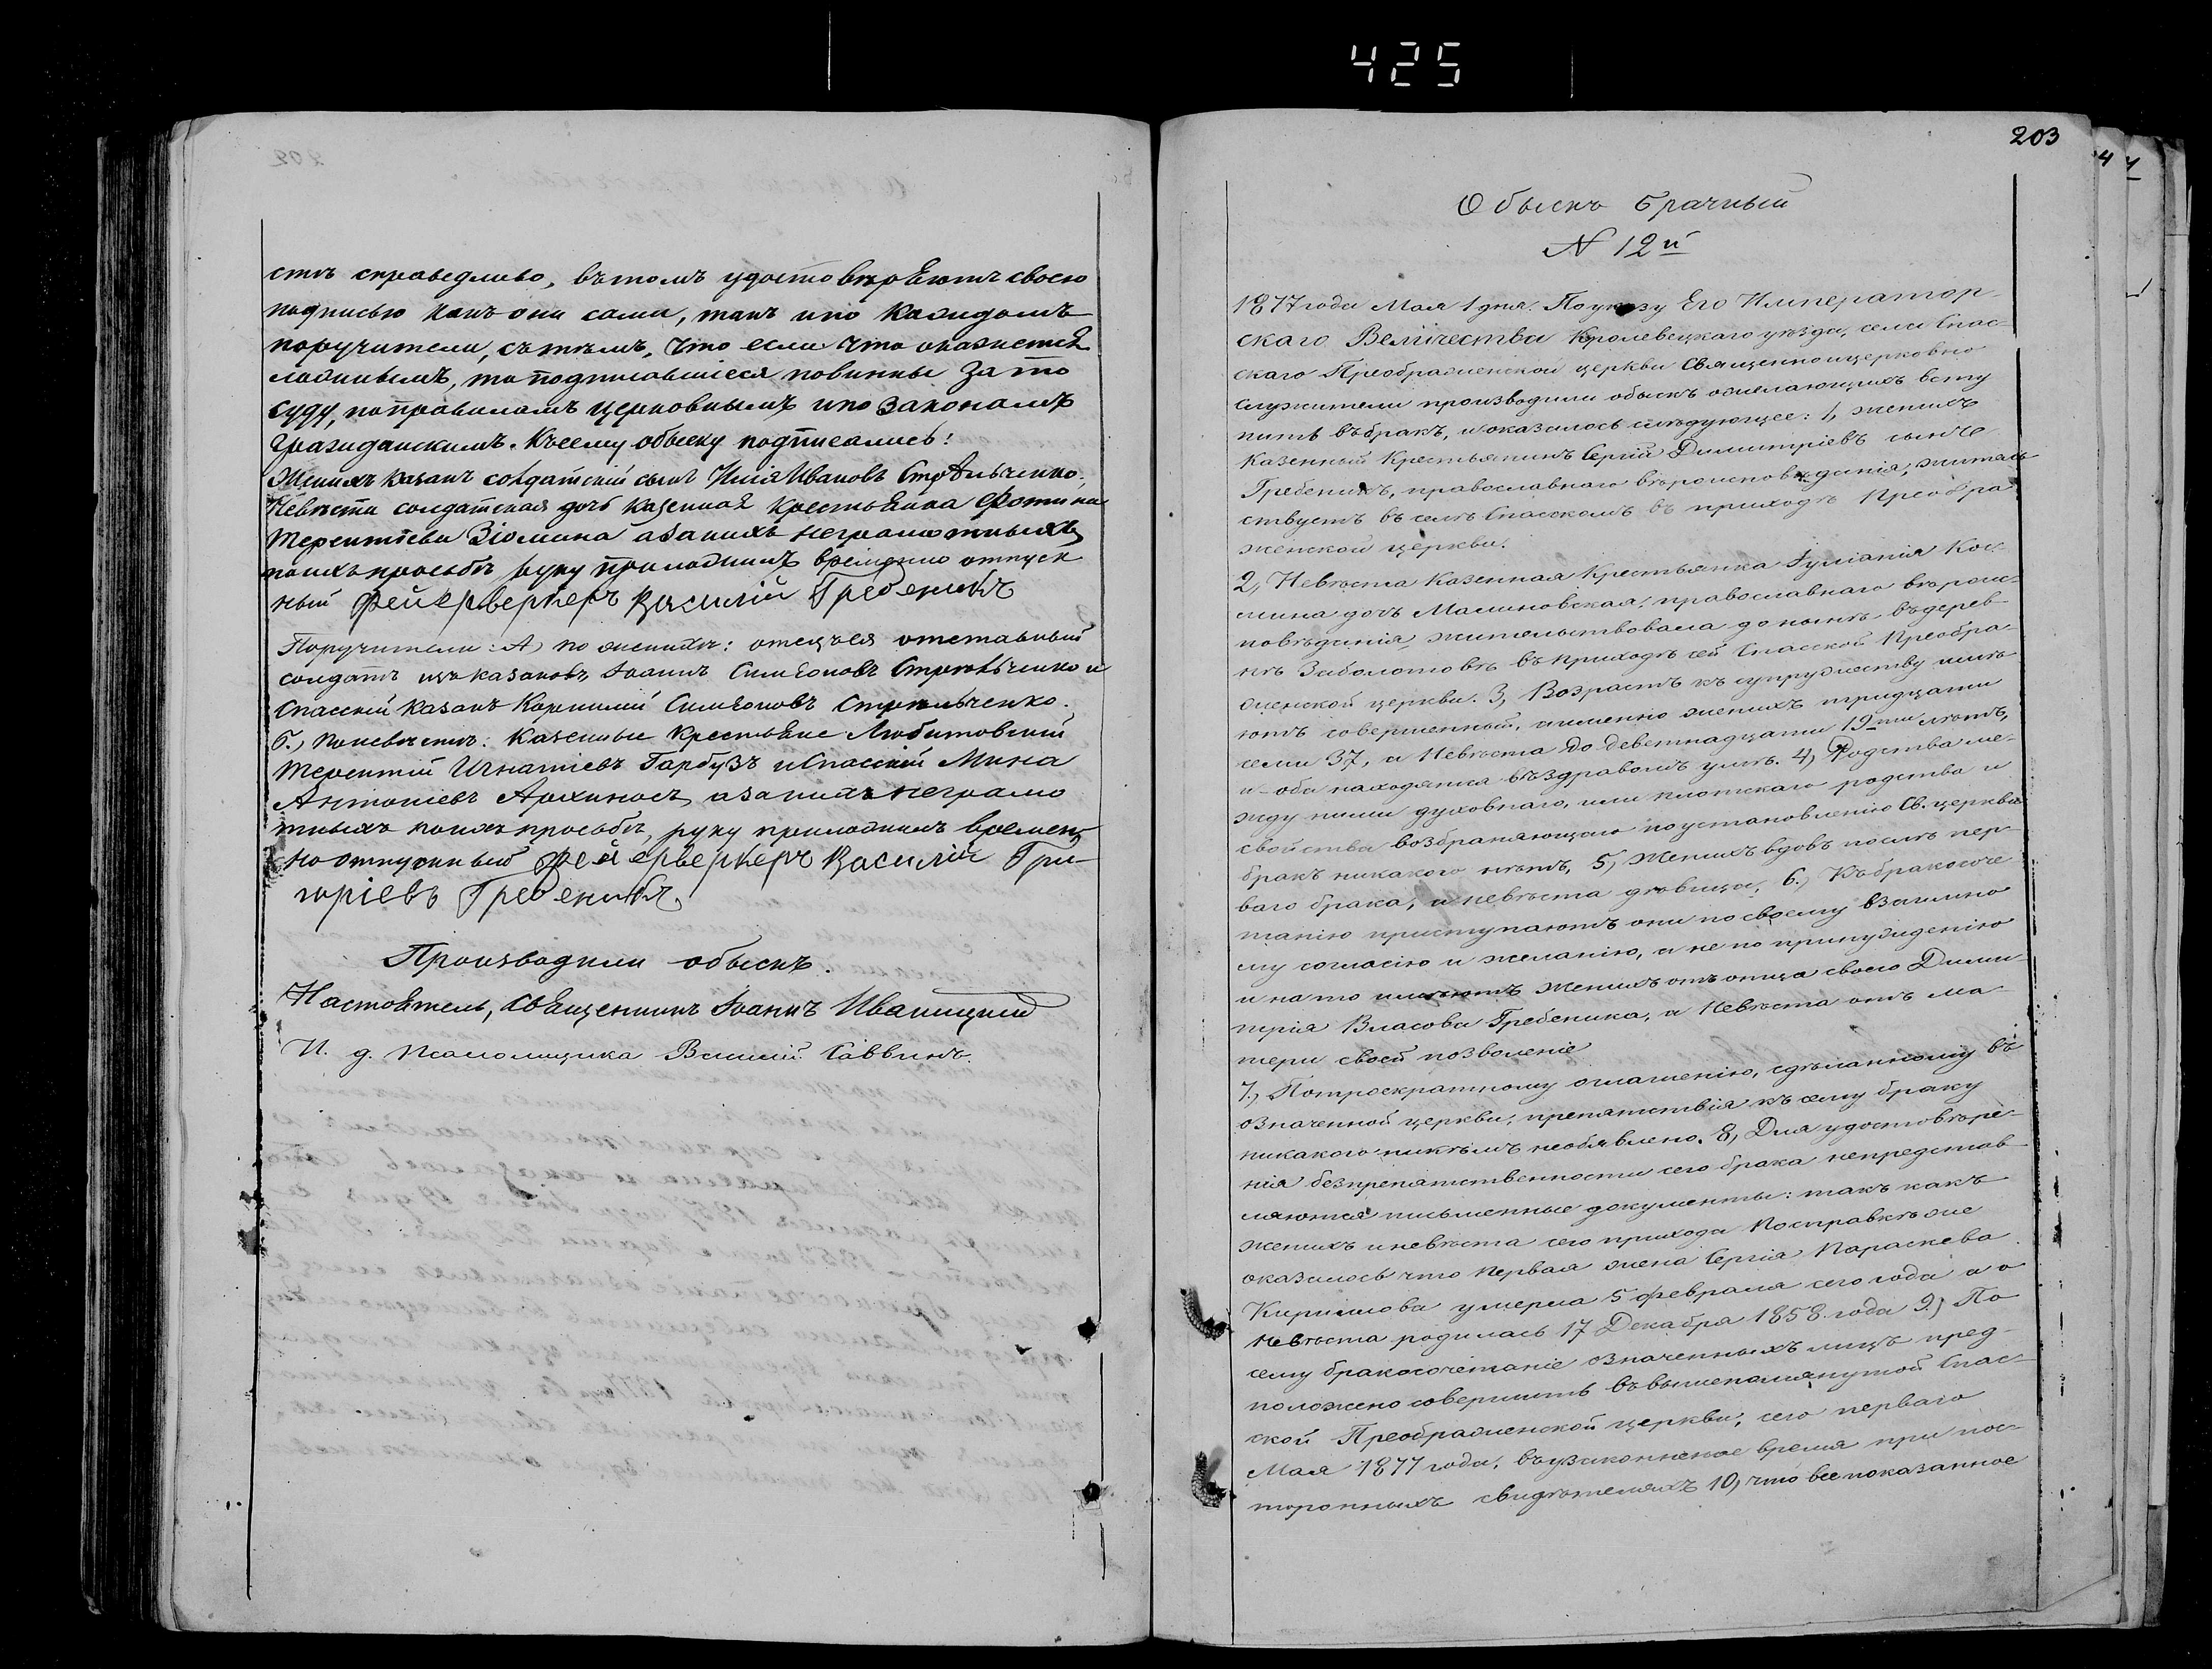 425
203
сть справедливо, въ томъ удостовѣряютъ своею
подписью какъ они сами, такъ и по каждомъ
поручители, съ тѣмъ, что если что окажется
ложнымъ, то подписавшіеся повинны за то
суду, по правиламъ церковнымъ и по законамъ
гражданскимъ. Къ сему обыску подписались:
Женихъ казакъ солдатскій сынъ Илія Ивановъ Стрѣльченко,
Невѣста солдатская дочь казенная крестьянка Фотина
Терентіева Зіомина а за нихъ неграмотныхъ
по ихъ просьбѣ руку приложилъ временно отпуск
ный Фейерверкеръ Василій Гребеникъ
Поручители: А) по женихѣ: отецъ его отставный
солдатъ изъ казаковъ, Іоаннъ Симеоновъ Стрѣльченко и
Спасскій казакъ Корнилій Симеоновъ Стрѣльченко.
б.) по невѣстѣ: казенные крестьяне Любитовскій
Терентій Игнатіевъ Гарбузъ и Спасскій Мина
Антоніевъ а за нихъ неграмо
тныхъ по ихъ просьбѣ, руку приложилъ времен
но отпускный Фейерверкеръ Василій Гри-
горіевъ Гребеникъ.
Производили обыскъ.
Настоятель, Священникъ Іоаннъ Иваницкій
И. д. псаломщика Василій Саввинъ.
Обыскъ брачный
N 12й
1877 года Мая 1 дня. По указу Его Император-
скаго Величества Кролевецкаго уѣзда, села Спас-
скаго Преображенской церкви Священноицерковно
служители производили обыскъ о желающихъ всту
пить въ бракъ, и оказалось слѣдующее: 1, женихъ
Казенный Крестьянинъ Сергій Димитріевъ сынъ
Гребеникъ, православнаго вѣроисповѣданія, житель
ствуетъ въ селѣ Спасскомъ въ приходѣ Преобра
женской церкви.
2, Невѣста казенная крестьянка Іуліанія Кос-
мина дочь Малиновская, православнаго вѣроис-
повѣданія, жительствовала до нынѣ въ дерев
нѣ Заболотовѣ въ приходѣ сей Спасской Преобра-
женской церкви. 3, Возрастъ къ супружеству имѣ
ютъ совершенный, именно женихъ тридцати
семи 37, а Невѣста до деветнадцати 19ти лѣтъ,
и оба находятся въ здравомъ умѣ. 4) Родства ме-
жду ними духовнаго, или плотскаго родства и
свойства возбраняющаго по установленію Св. церкви
бракъ никакого нѣтъ, 5, Женихъ вдовъ послѣ пер-
ваго брака, а невѣста дѣвица, 6.) Къ бракосоче
танію приступаютъ они по своему взаимно
му согласію и желанію, а не по принужденію
и на то имѣютъ женихъ отъ отца своего Дими-
трія Власова Гребеника, а Невѣста отъ ма-
тери своей позволеніе
7.) По троекратному оглашенію, сдѣланному въ
означенной церкви, препятствія къ сему браку
никакого никѣмъ необявлено. 8, Для удостовѣре-
нія безпрепятственности сего брака непредстав
ляются письменные документы: такъ какъ
женихъ и невѣста сего прихода По справкѣ же
оказалось что первая жена Сергія Параскева
Кириллова умерла 5 февраля сего года а о
Невѣста родилась 17 Декабря 1858 года 9.) По
сему бракосочетаніе означенныхъ лицъ пред-
положено совершить въ вышепомянутой Спас-
ской Преображенской церкви, сего перваго
Мая 1877 года, въ узаконенное время при пос-
торонныхъ свидѣтеляхъ 10) что все показанное